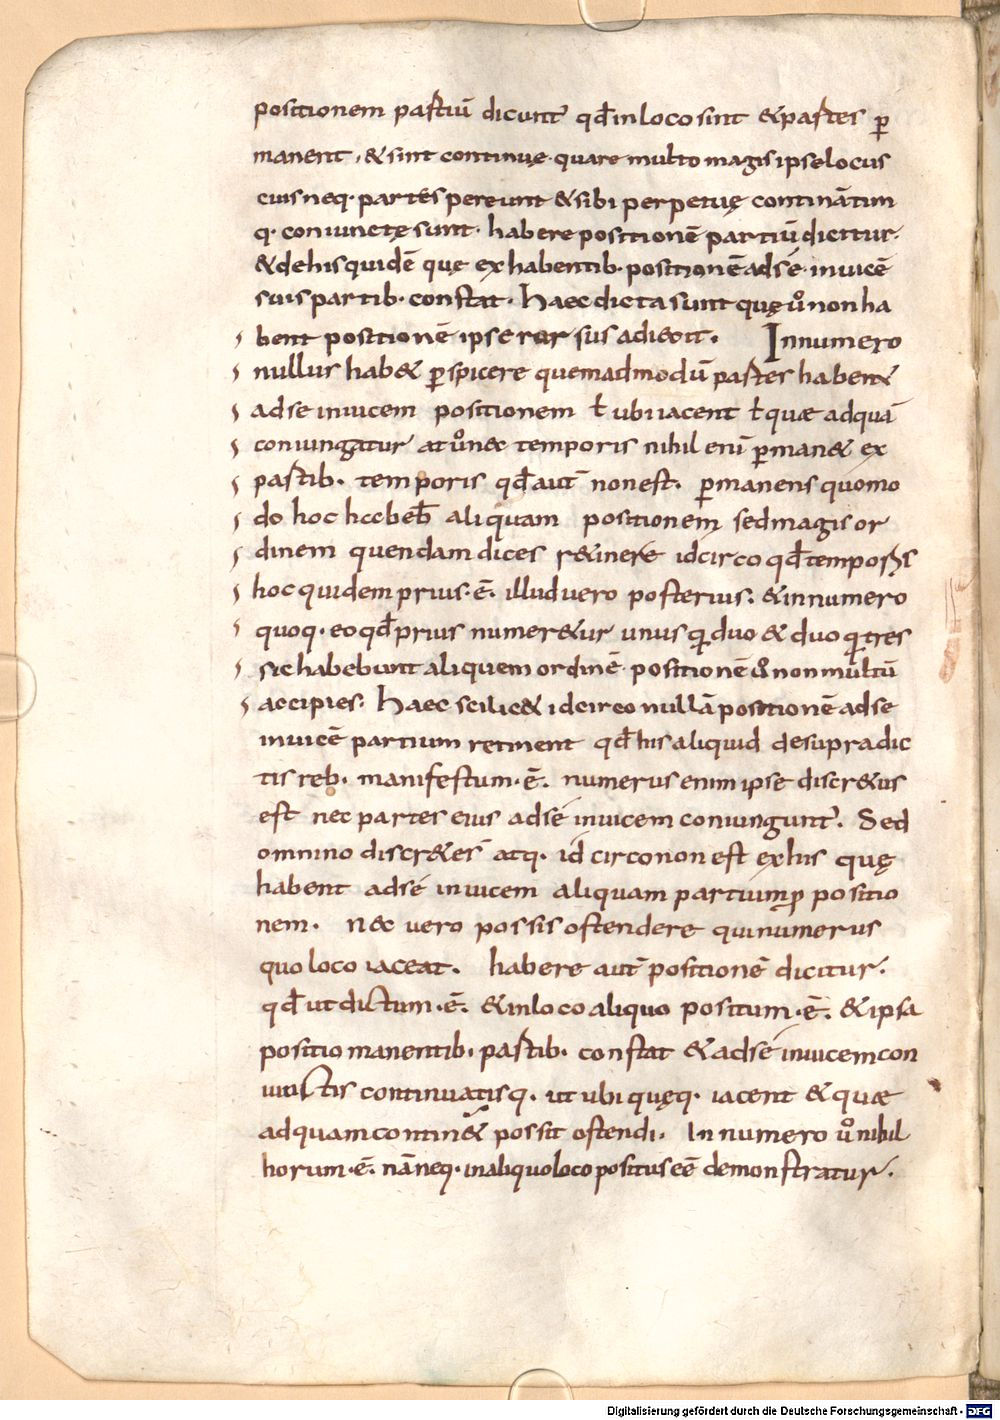 positionem partiū dicunt᷒ qđ in loco sint & partes ꝑ
manent, & sint continuę. quare multo magis ipse locus
cuius neq· partes pereunt & sibi perpetuę continātim
q· coniunctę sunt· habere positionē partiū dicitur.
& de his quidē quę ex habentib· positionē ad sé inuicē
suis partib· constat. Haec dicta sunt quę ů non ha
bent positionē ipse rursus adiecit. In numero
nullus hab& ꝑspicere quemadmodū partes habent
ad se inuicem positionem ł ubi iacent ł quae ad quā
coniungatur at ů nec temporis nihil enī ꝑman& ex
partib· temporis qđ aut̄ non est. ꝑmanens quomo
do hoc habeb̄ aliquam positionem sed magis or
dinem quendam dices r&inere idcirco qđ temporis
hoc quidem prius·ē· illud uero posterius. & in numero
quoq· eo qđ prius numer&ur unus qͣ duo & duo qͣ tres
sic habebunt aliquem ordinē positionē ů non multū
accipies. Haec scilic& idcirco nullā positionē ad se
inuicē partium retinent qđ his aliquid de supra dic
tis reb· manifestum·ē· numerus enim ipse discr&us
est nec partes eius ad sé inuicem coniungunt᷒. Sed
omnino discr&es atq· idcirco non est ex his quę
habent ad sé inuicem aliquam partium positio
nem. Nec uero possis ostendere qui numerus
quo loco iaceat. habere aut̄ positionē dicitur.
qđ ut dictum·ē· & in loco aliquo positum·ē· & ipsa
positio manentib· partib· constat & ad sé inuicem con
iunctis continuatisq· ut ubi quęq· iacent & quae
ad quam contin& possit ostendi. In numero ů nihil
horum·ē· nā neq· in aliquo loco positus eē demonstratur.
Digitalisierung gefördert durch die Deutsche Forschungsgemeinschaft - DFG